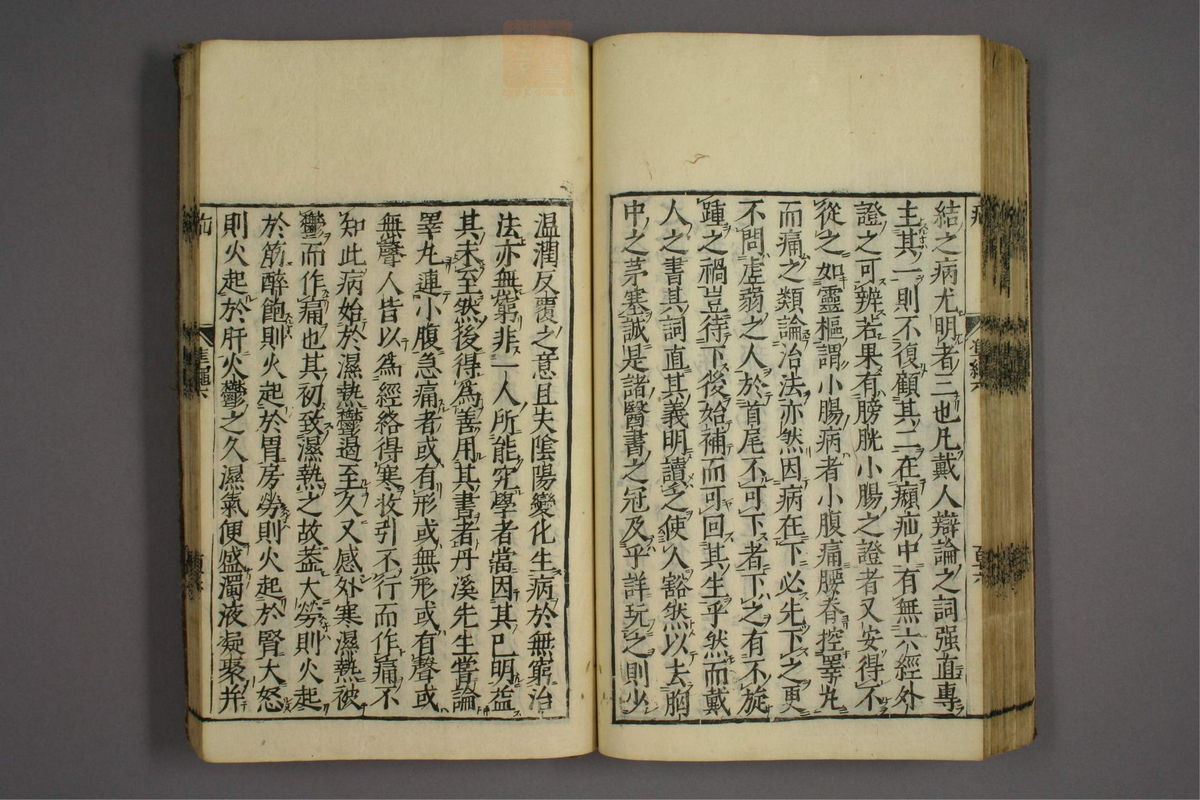 結之病尤明者三也凡戴人辯論之詞强直專
主其一則不復顧其二在㿗疝中有無六經外
證之可辨若果有膀胱小腸之證者又安得不
從之如靈樞謂小腸病者小腹痛腰脊控睪丸
而痛之類論治法亦然因病在下必先下之更
不問虛弱之人於首尾不可下者下之有不旋
踵之禍豈待下後始補而可回其生乎然而戴
人之書其詞直其義明讀之使人豁然以去胸
中之茅塞誠是諸醫書之冠及乎詳玩之則少
温潤反覆之意且失陰陽變化生病於無窮治
法亦無窮非一人所能究學者當因其已明益
其未至然後得爲善用其書者丹溪先生嘗論
睪丸連小腹急痛者或有形或無形或有聲或
無聲人皆以爲經絡得寒收引不行而作痛不
知此病始於濕熱鬱遏至久又感外寒濕熱被
鬱而作痛也其初致濕熱之故葢大勞則火起
於筋醉飽則火起於胃房勞則火起於腎大怒
則火起於肝火鬱之久濕氣便盛濁液凝聚并
疝